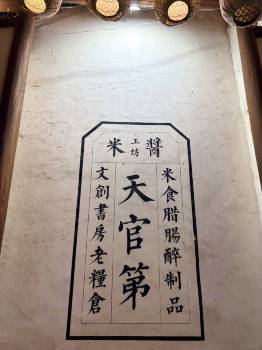 米工坊醬
米食腊腸醉制品
天官第
文創書房老糧倉